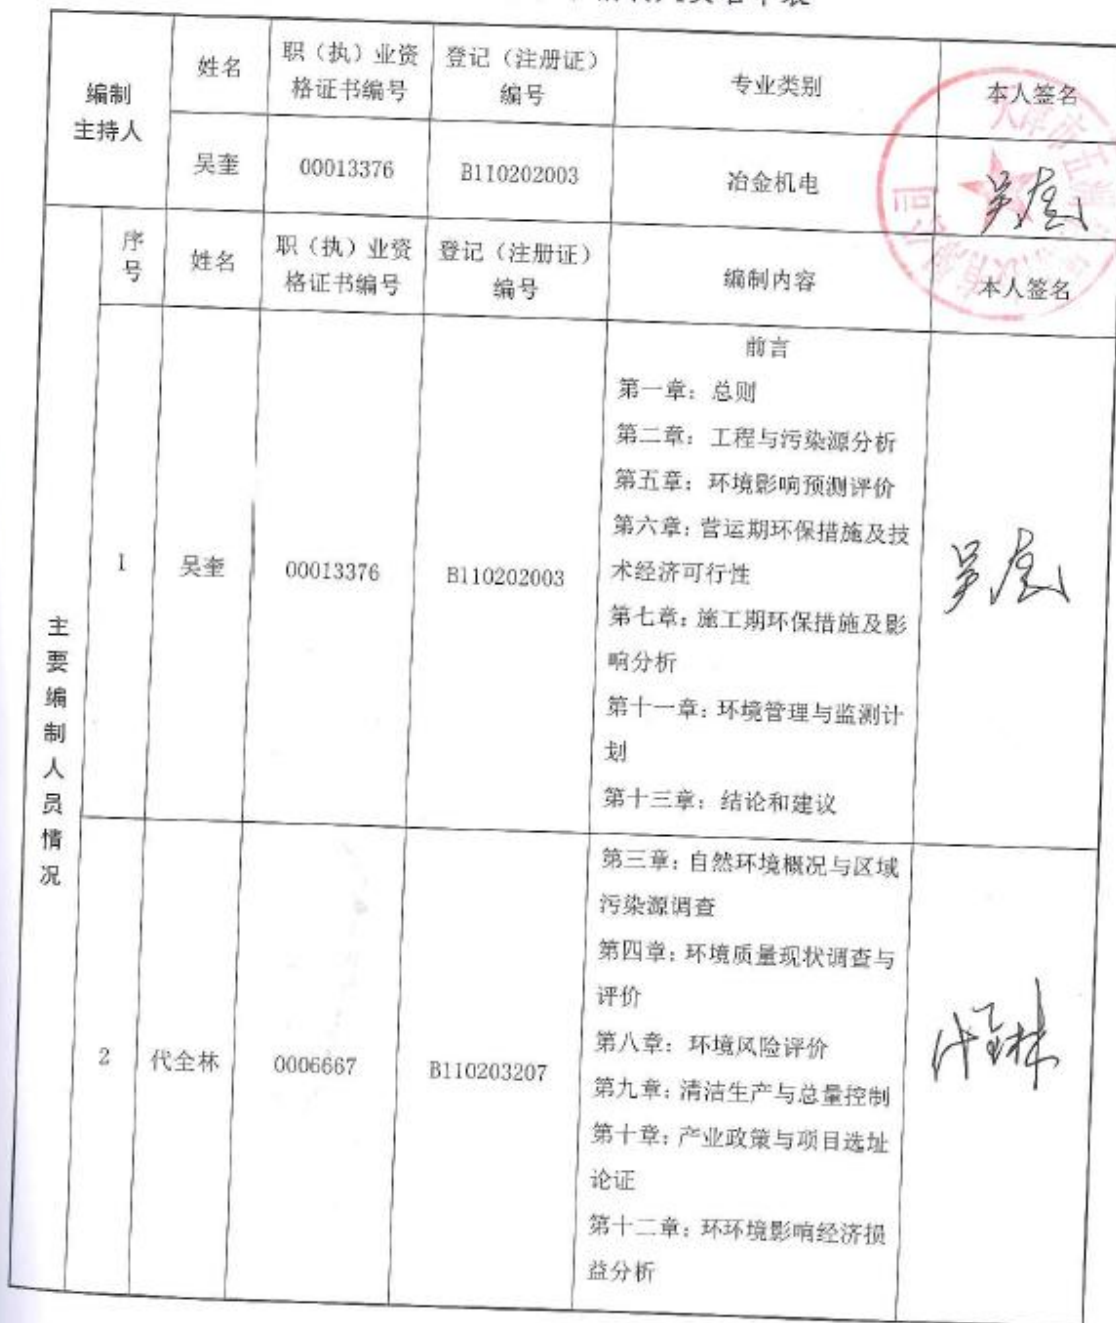 编制
主持人
姓名
职（执）业资
格证书编号
登记（注册证）
编号
专业类别
本人签名
吴奎
00013376
B110202003
冶金机电
吴奎
主要编制人员情况
序
号
姓名
职（执）业资
格证书编号
登记（注册证）
编号
编制内容
本人签名
1
吴奎
00013376
B110202003
前言
第一章：总则
第二章：工程与污染源分析
第五章：环境影响预测评价
第六章：营运期环保措施及技
术经济可行性
第七章：施工期环保措施及影
响分析
第十一章：环境管理与监测计
划
第十三章：结论和建议
吴奎
2
代全林
0006667
B110203207
第三章：自然环境概况与区域
污染源调查
第四章：环境质量现状调查与
评价
第八章：环境风险评价
第九章：清洁生产与总量控制
第十章：产业政策与项目选址
论证
第十二章：环环境影响经济损
益分析
代全林